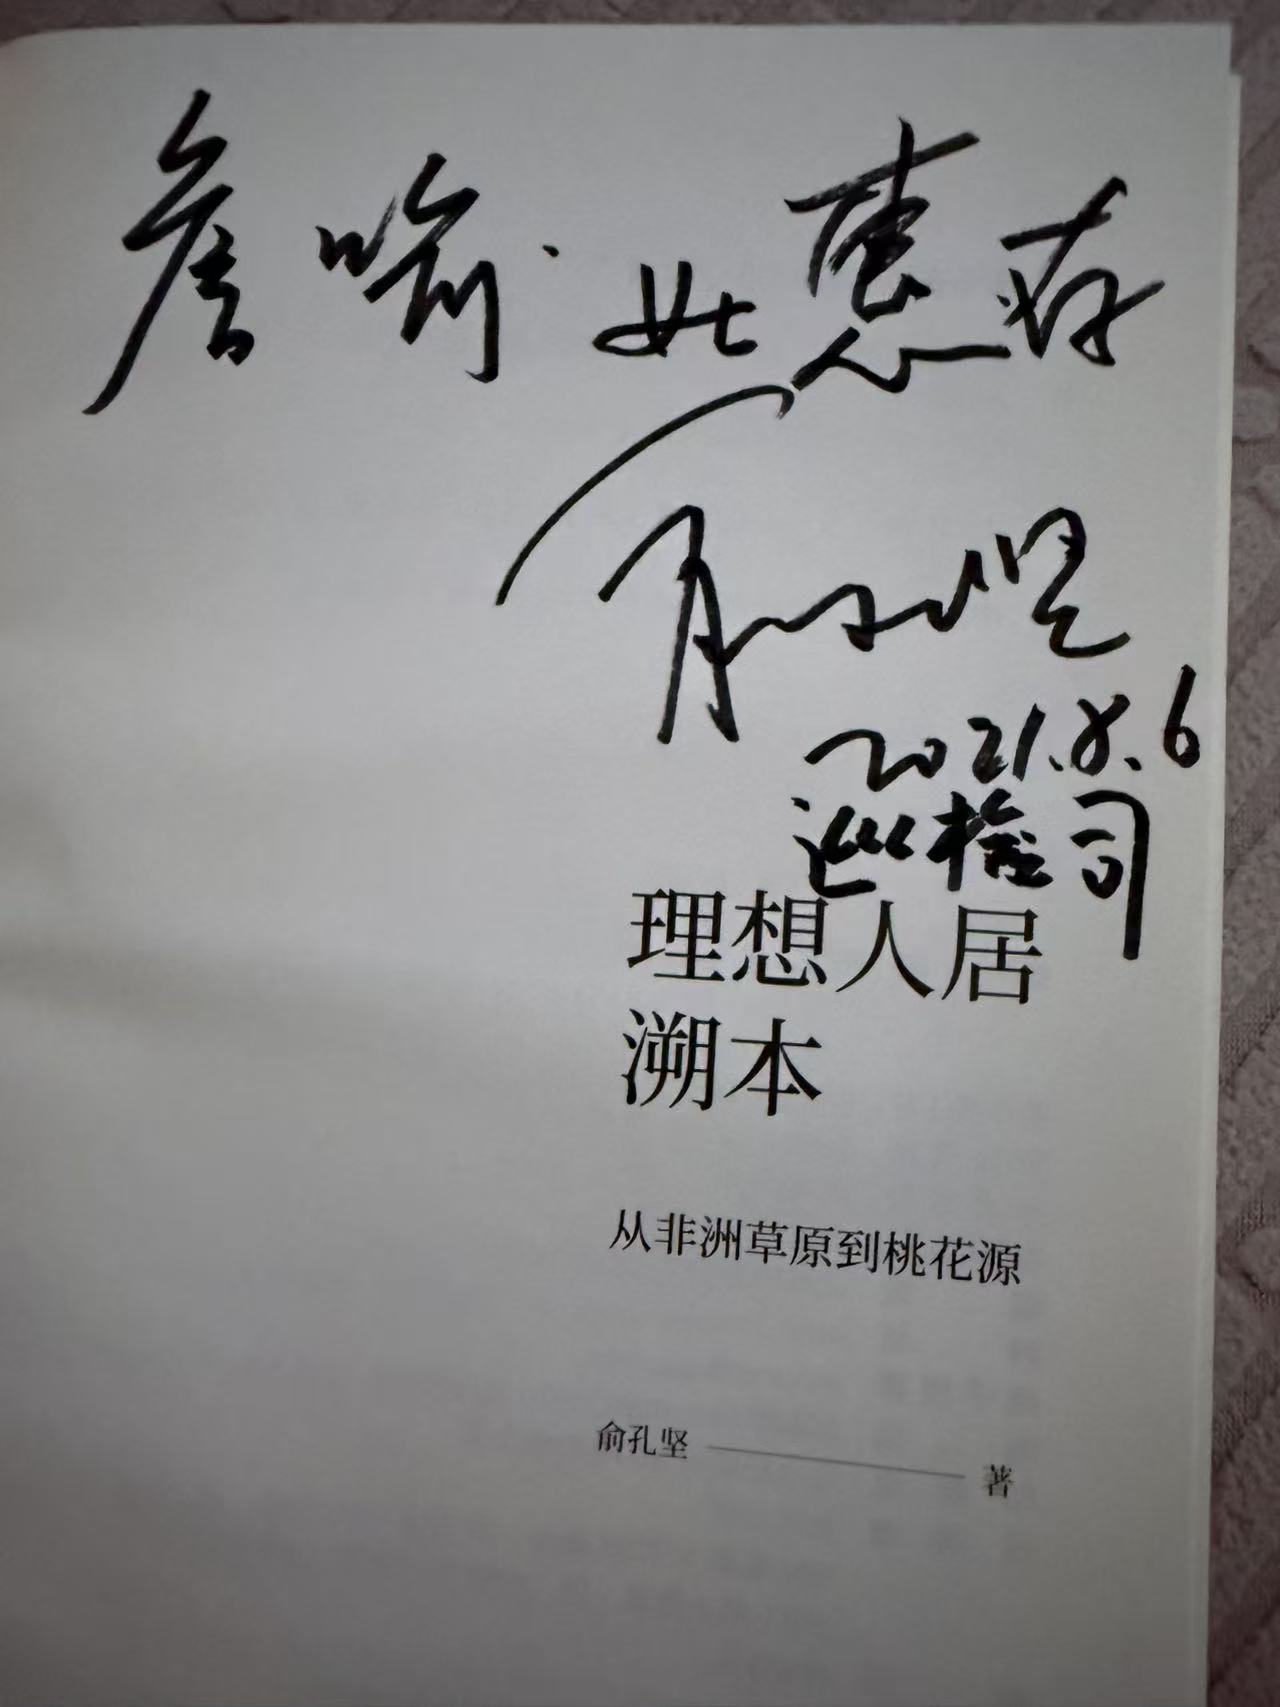 詹喻姓惠存
俞孔坚
2021.8.6
巡检司
理想人居
溯本
从非洲草原到桃花源
俞孔坚 著